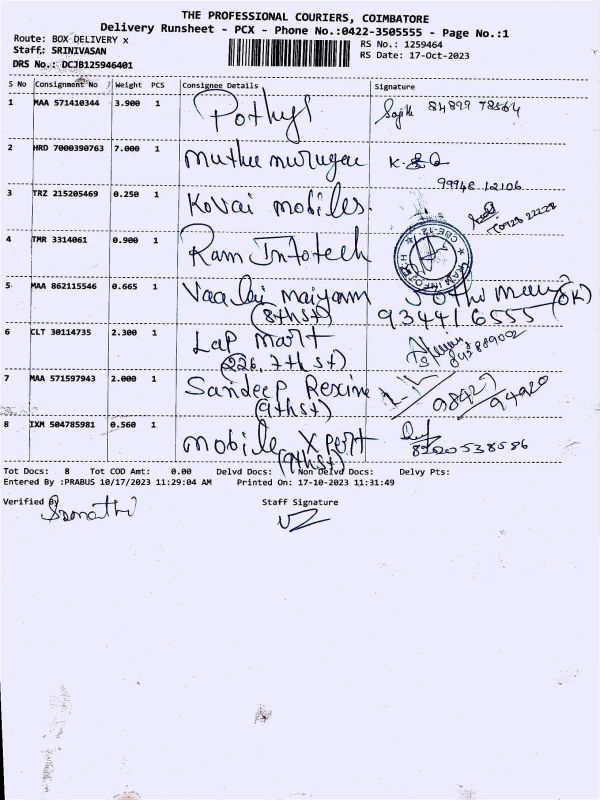 THE PROFESSIONAL COURIERS, COIMBATORE
Delivery Runsheet - PCX - Phone No.:0422-3505555 - Page No.:1
Route: BOX DELIVERY x
RS No.: 1259464
Staff: SRINIVASAN
RS Date: 17-Oct-2023
DRS No.: DCJB125946401
S No Consignment No Weight PCS Consignee Details Signature
1 MAA 571410344 3.900 1 Pothys 84899 78564
2 HRD 7000390763 7.000 1 Muthu murugan
99948 12106
3 TRZ 215205469 0.250 1 Kovai mobiles.
4 TMR 3314061 0.900 1 Ram Infotech
5 MAA 862115546 0.665 1 Vaalai maiyam (OK)
(8thst) 934416555
6 CLT 30114735 2.300 1 Lap mart
(226, 7th st)
7 MAA 571597943 2.000 1 Sandeep Rexine 98427
(9thst) 94920
8 IXM 504785981 0.560 1 mobile Xpert
(9thst) 8220538586
Tot Docs: 8 Tot COD Amt: 0.00 Delvd Docs: Non Delvd Docs: Delvy Pts:
Entered By :PRABUS 10/17/2023 11:29:04 AM Printed On: 17-10-2023 11:31:49
Verified By Staff Signature